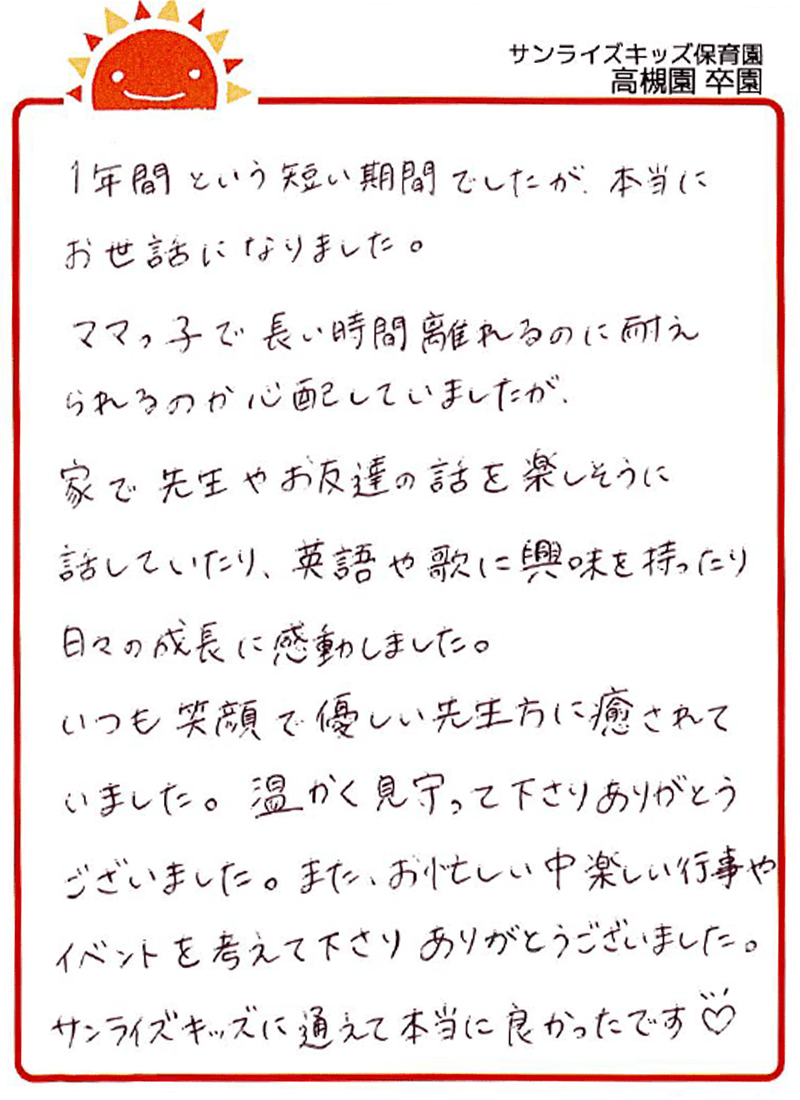 サンライズキッズ保育園
高槻園 卒園
1年間という短い期間でしたが、本当に
お世話になりました。
ママっ子で長い時間離れるのに耐え
られるのか心配していましたが、
家で先生やお友達の話を楽しそうに
話していたり、英語や歌に興味を持ったり
日々の成長に感動しました。
いつも笑顔で優しい先生方に癒されて
いました。温かく見守って下さりありがとう
ございました。また、お忙しい中楽しい行事や
イベントを考えて下さりありがとうございました。
サンライズキッズに通えて本当に良かったです♡